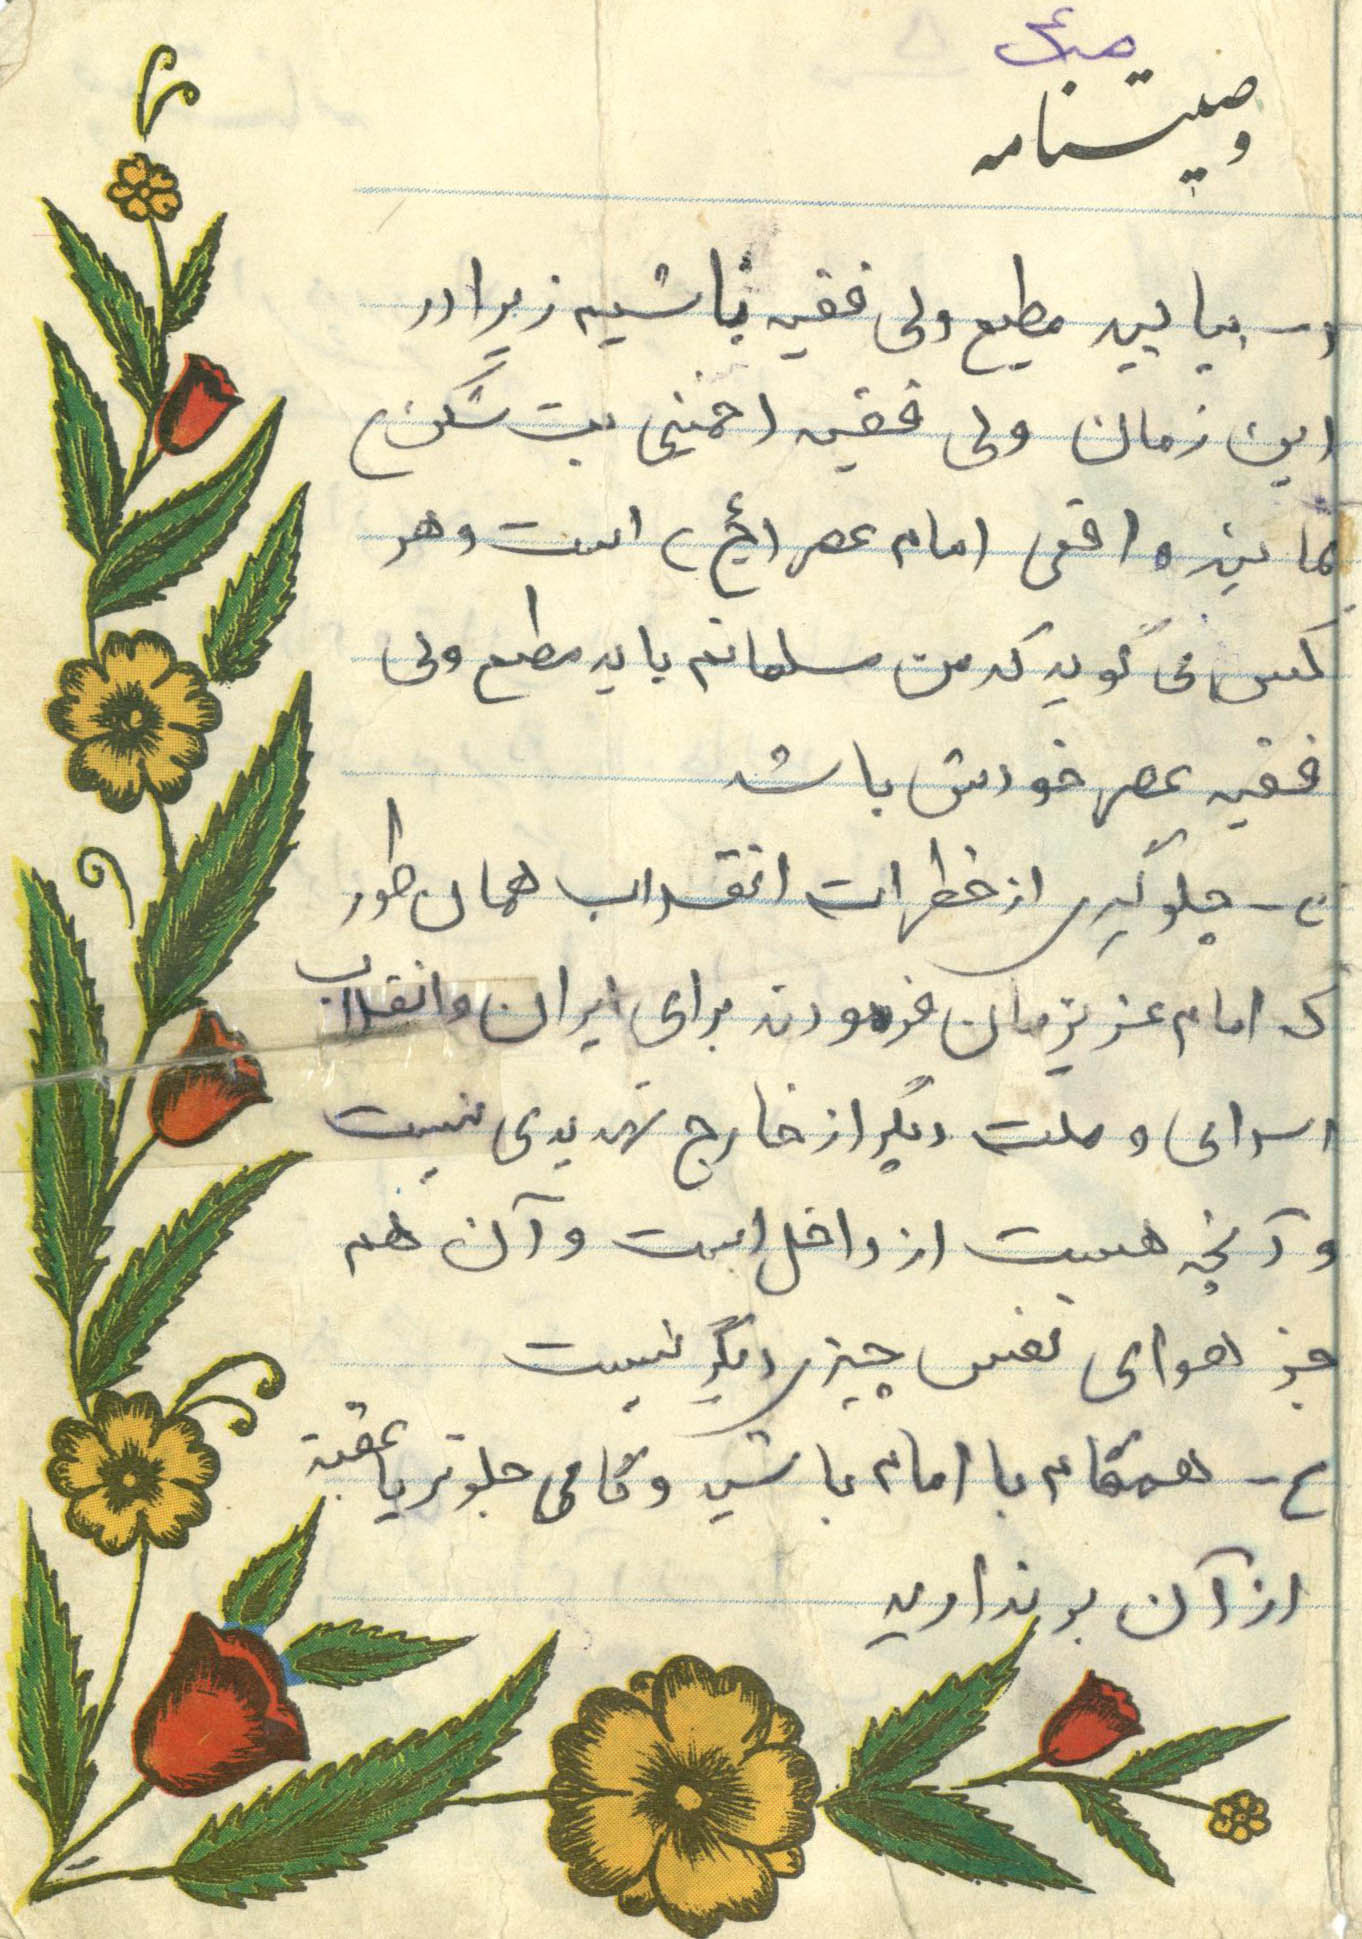 وصیتنامه
۲- بیایید مطیع ولی فقیه باشیم زیرا در
این زمان ولی فقیه (خمینی بت شکن)
نماینده واقعی (امام عصر (عج)) است و هر
کس می گوید که من مسلمانم باید مطیع ولی
فقیه عصر خودش باشد
۳- جلوگیری از خطرات انقلاب همان طور
که امام عزیزمان فرمودند برای ایران و انقلاب
اسلامی و ملت دیگر از خارج تهدیدی نیست
و آنچه هست از داخل است و آن هم
جز هوای نفس چیزی دیگر نیست
۴- همگام با امام باشید و گامی جلوتر یا عقبتر
از آن برندارید